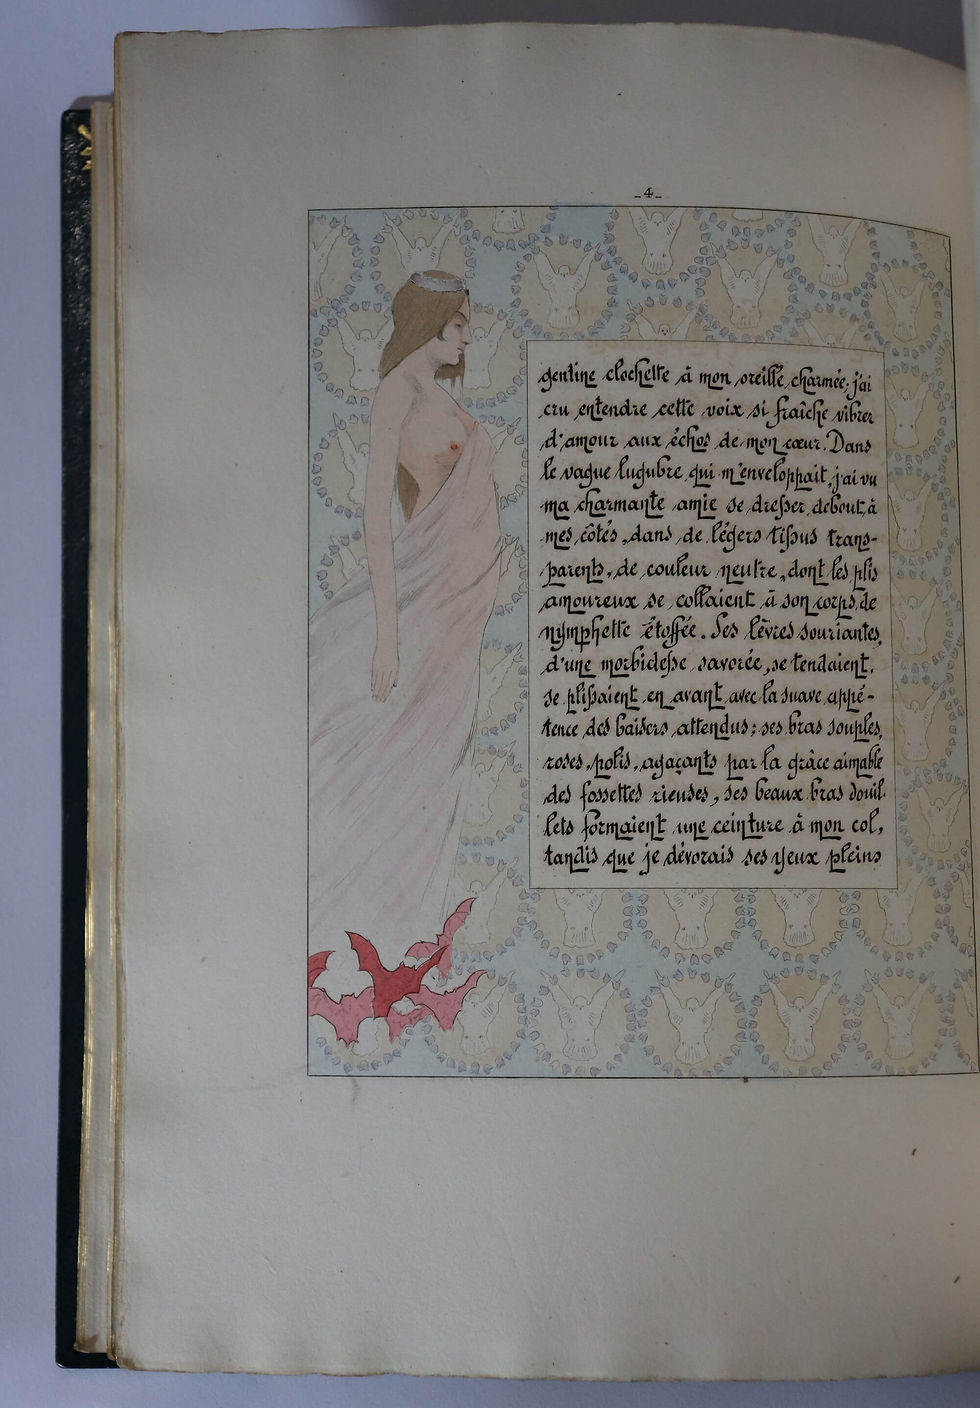 _4_
gentine clochette à mon oreille charmée; j'ai
cru entendre cette voix si fraîche vibrer
d'amour aux échos de mon cœur. Dans
le vague lugubre qui m'enveloppait, j'ai vu
ma charmante amie se dresser debout, à
mes côtés, dans de légers tissus trans-
parents, de couleur neutre, dont les plis
amoureux se collaient à son corps de
nymphette étoffée. Ses lèvres souriantes,
d'une morbidesse savorée, se tendaient,
se plissaient en avant avec la suave appé-
tence des baisers attendus; ses bras souples,
roses, polis, agaçants par la grâce aimable
des fossettes rieuses, ses beaux bras douil-
lets formaient une ceinture à mon col,
tandis que je dévorais ses yeux pleins